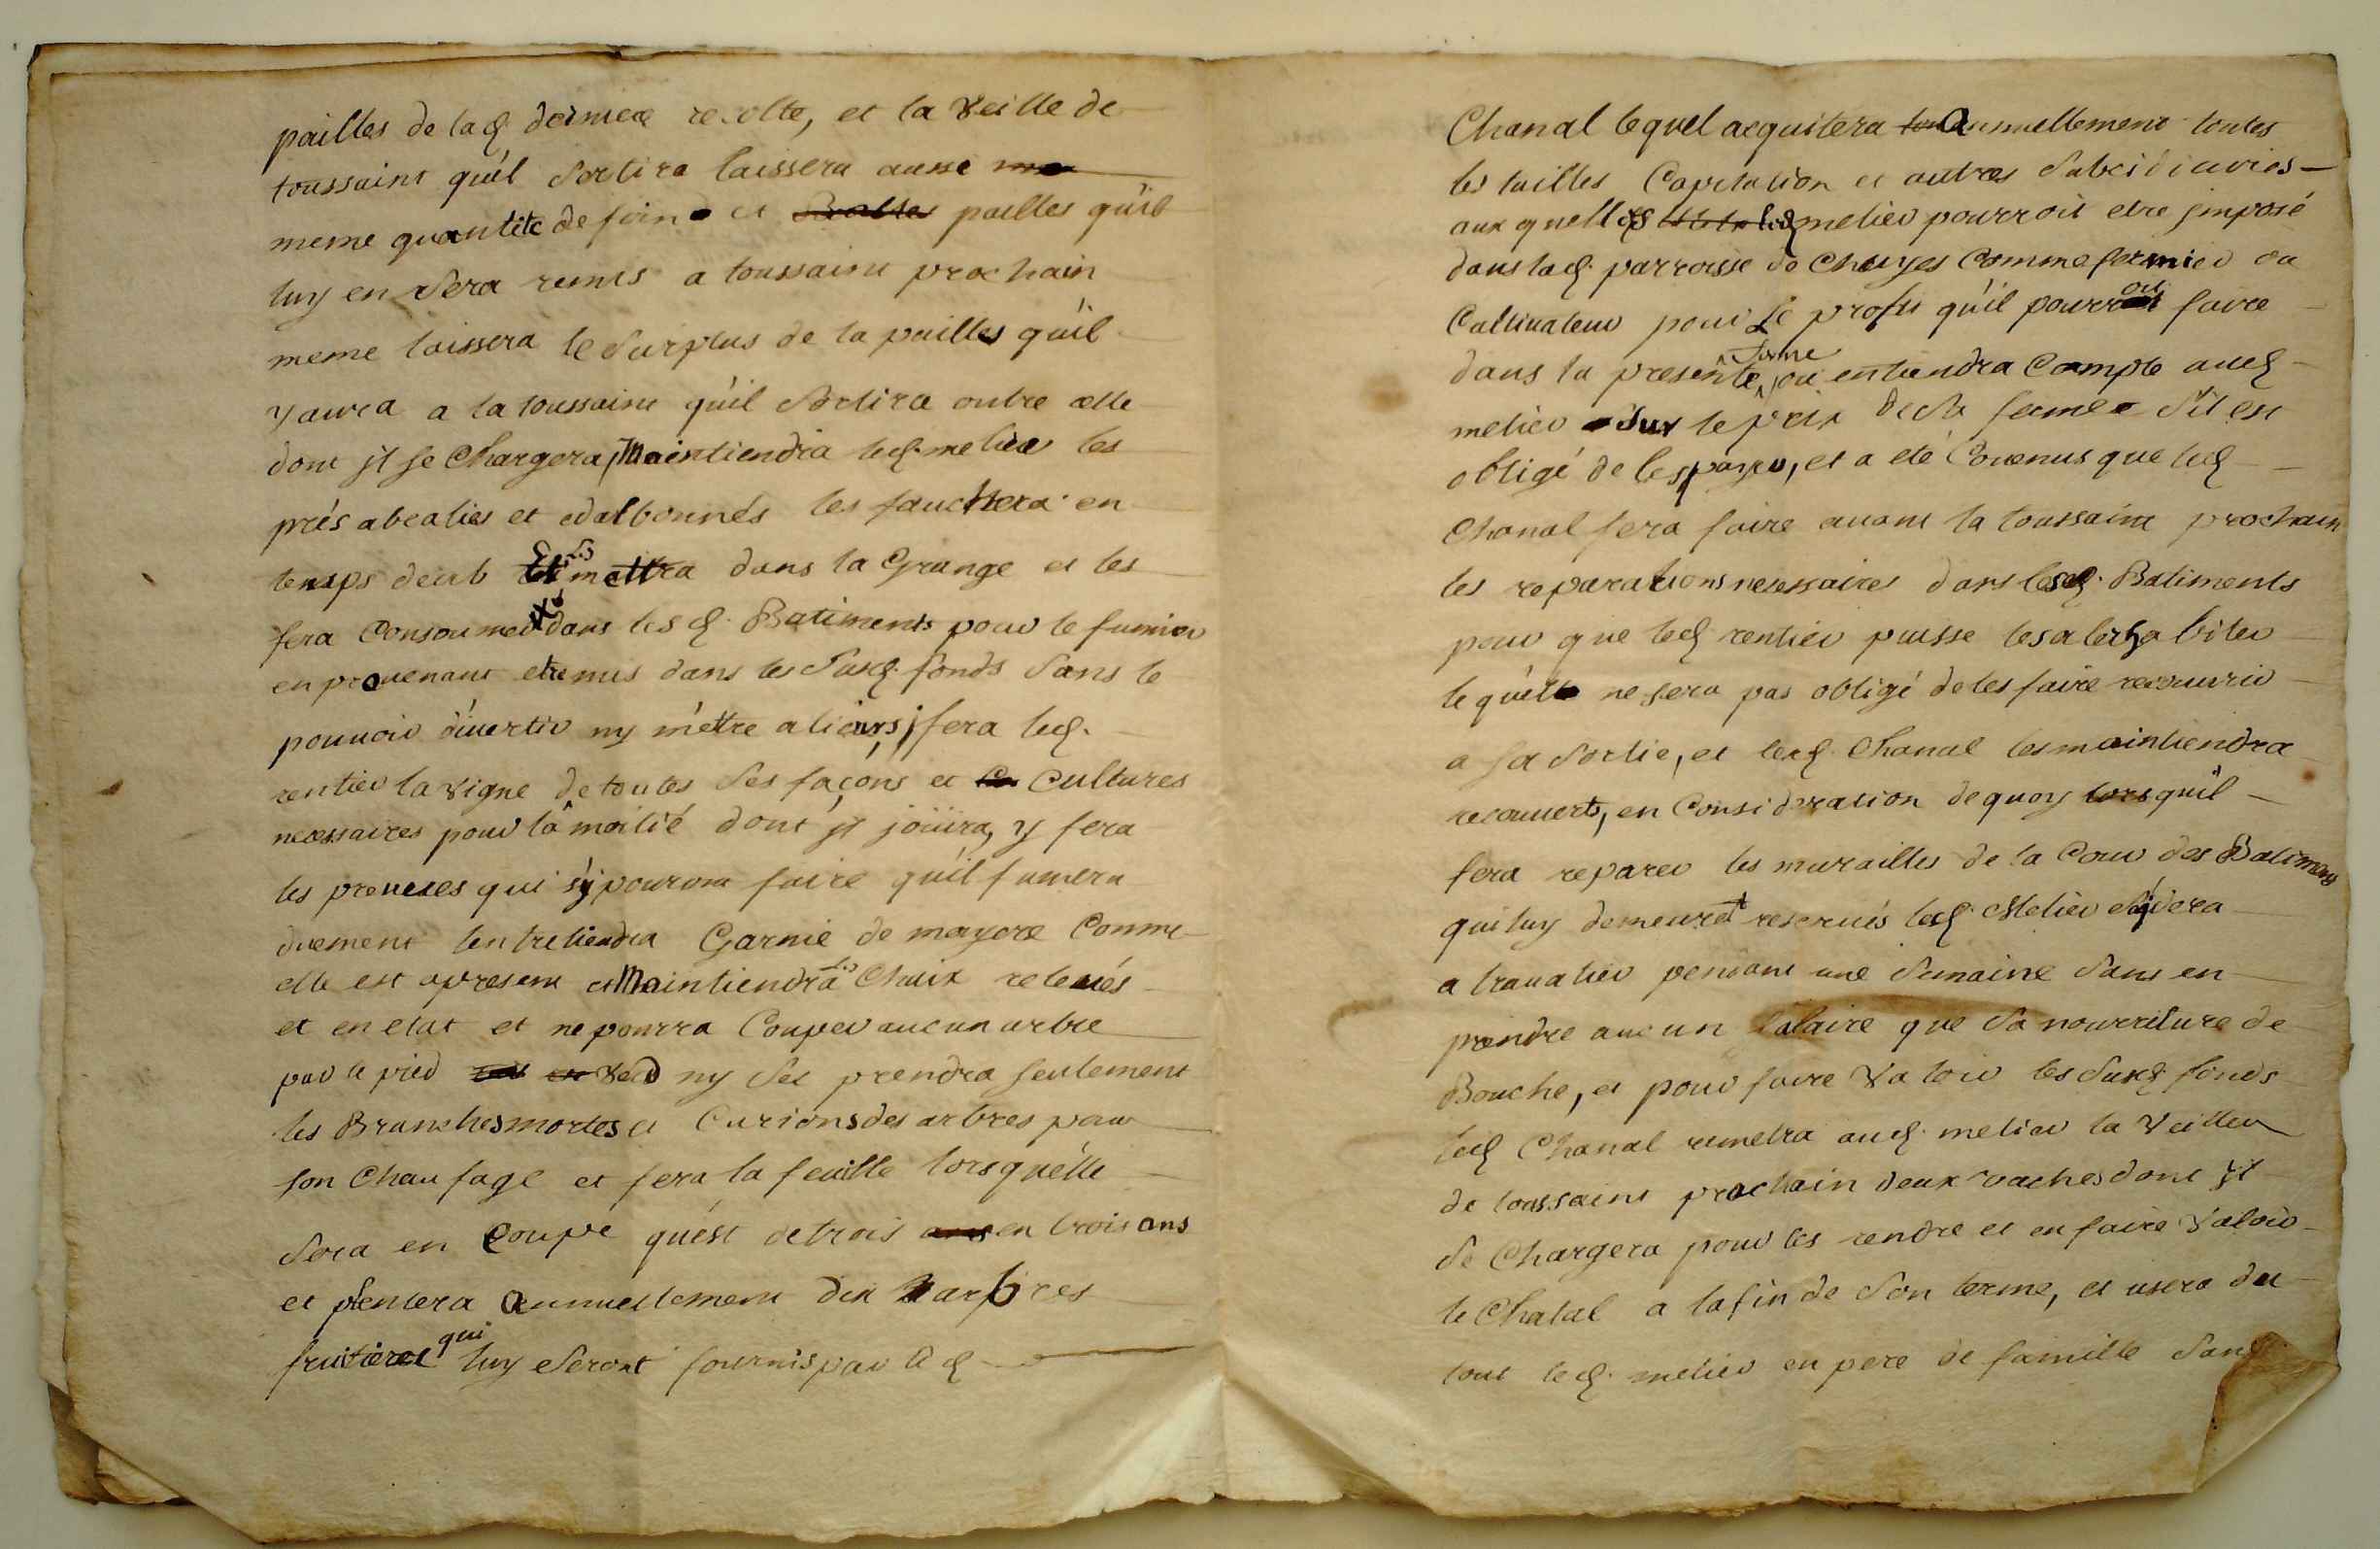 pailles de lad. derniere recolte, et la Veille de
toussaint qu'il Sortira laissera ausse
meme quantité de foin et Balles pailles qu'il
luy en Sera remis a toussaint prochain
meme laissera le Surplus de la pailles qu'il
y aura a la toussaint qu'il Sortira outre celle
dont jl se Chargera, Maintiendra led. melier les
prés abealies et dalbonnés les fauchera en
temps deub Et les mettra dans la Grange et les
fera Consoumer dans lesd. Batiments pour le fumier
en prouenant etre mis dans les Susd. fonds Sans le
pouuoir diuertir ny mettre alieurs, fera led.
rentier la vigne de toutes Ses façons et Cultures
necessaires pour la moitié dont jl joüira, y fera
les preueres qui s'y pouront faire qu'il fumera
duement lentretiendra Garnie de mayere Comme
elle est apresent et Maintiendra les Chaix releués
et en etat et ne pourra Couper aucun arbre
par le pied Verd ny Sec prendra seulement
les Branches mortes et Curions des arbres pour
son Chaufage et fera la feuille lors qu'elle
Sera en Coupe qu'est de trois ans en trois ans
et plentera Annuellement dix arbres
fruitieres qui luy Seront fournis par led
Chanal le quel acquitera Annuellement toutes
les tailles Capitation et autres Subcidiaires
aux quelles led melier pourroit etre jmposé
dans lad. parroisse de Chuyes Comme fermier ou
Cultiuateur pour le profit qu'il pourroit faire
dans la presente ferme, ou en tiendra Compte aud
melier Sur le prix de Sa ferme S'il est
obligé de les payer, et a eté Conuenus que led
Chanal fera faire auant la toussaint prochain
les reparations necessaires dans lesd. Batiments
pour que led rentier puisse les aler habiter
le quel ne sera pas obligé de les faire recouurir
a sa Sortie, et led. Chanal les maintiendra
recouuerts, en Consideration de quoy lors qu'il
fera reparer les murailles de la Cour des Batiments
qui luy demeurent reserués led. Melier aydera
a trauallier pendant une Semaine Sans en
prendre aucun Salaire que Sa nourriture de
Bouche, et pour faire Valoir les Susd fonds
led Chanal remetra aud. melier la Veillee
de toussaint prochain deux vaches dont jl
Se Chargera pour les rendre et en faire Valoir
le Chatal a la fin de Son terme, et usera du
tout led. melier en pere de famille Sans